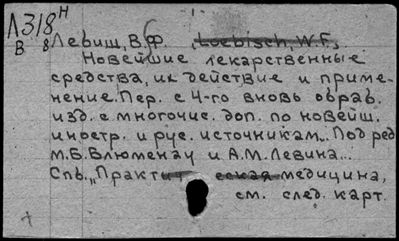 Л318 Н
В 8
Левиш, В.Ф. Loebisch, W.F.,
Новейшие лекарственные
средства, их действие и приме-
нение. Пер. с 4-го вновь обраб.
изд. с многочис. доп. по новейш.
иностр. и рус. источникам... Под ред
М.Б. Блюменау и А.М. Левина...
Спб., Практическая медицина,
см. след. карт.